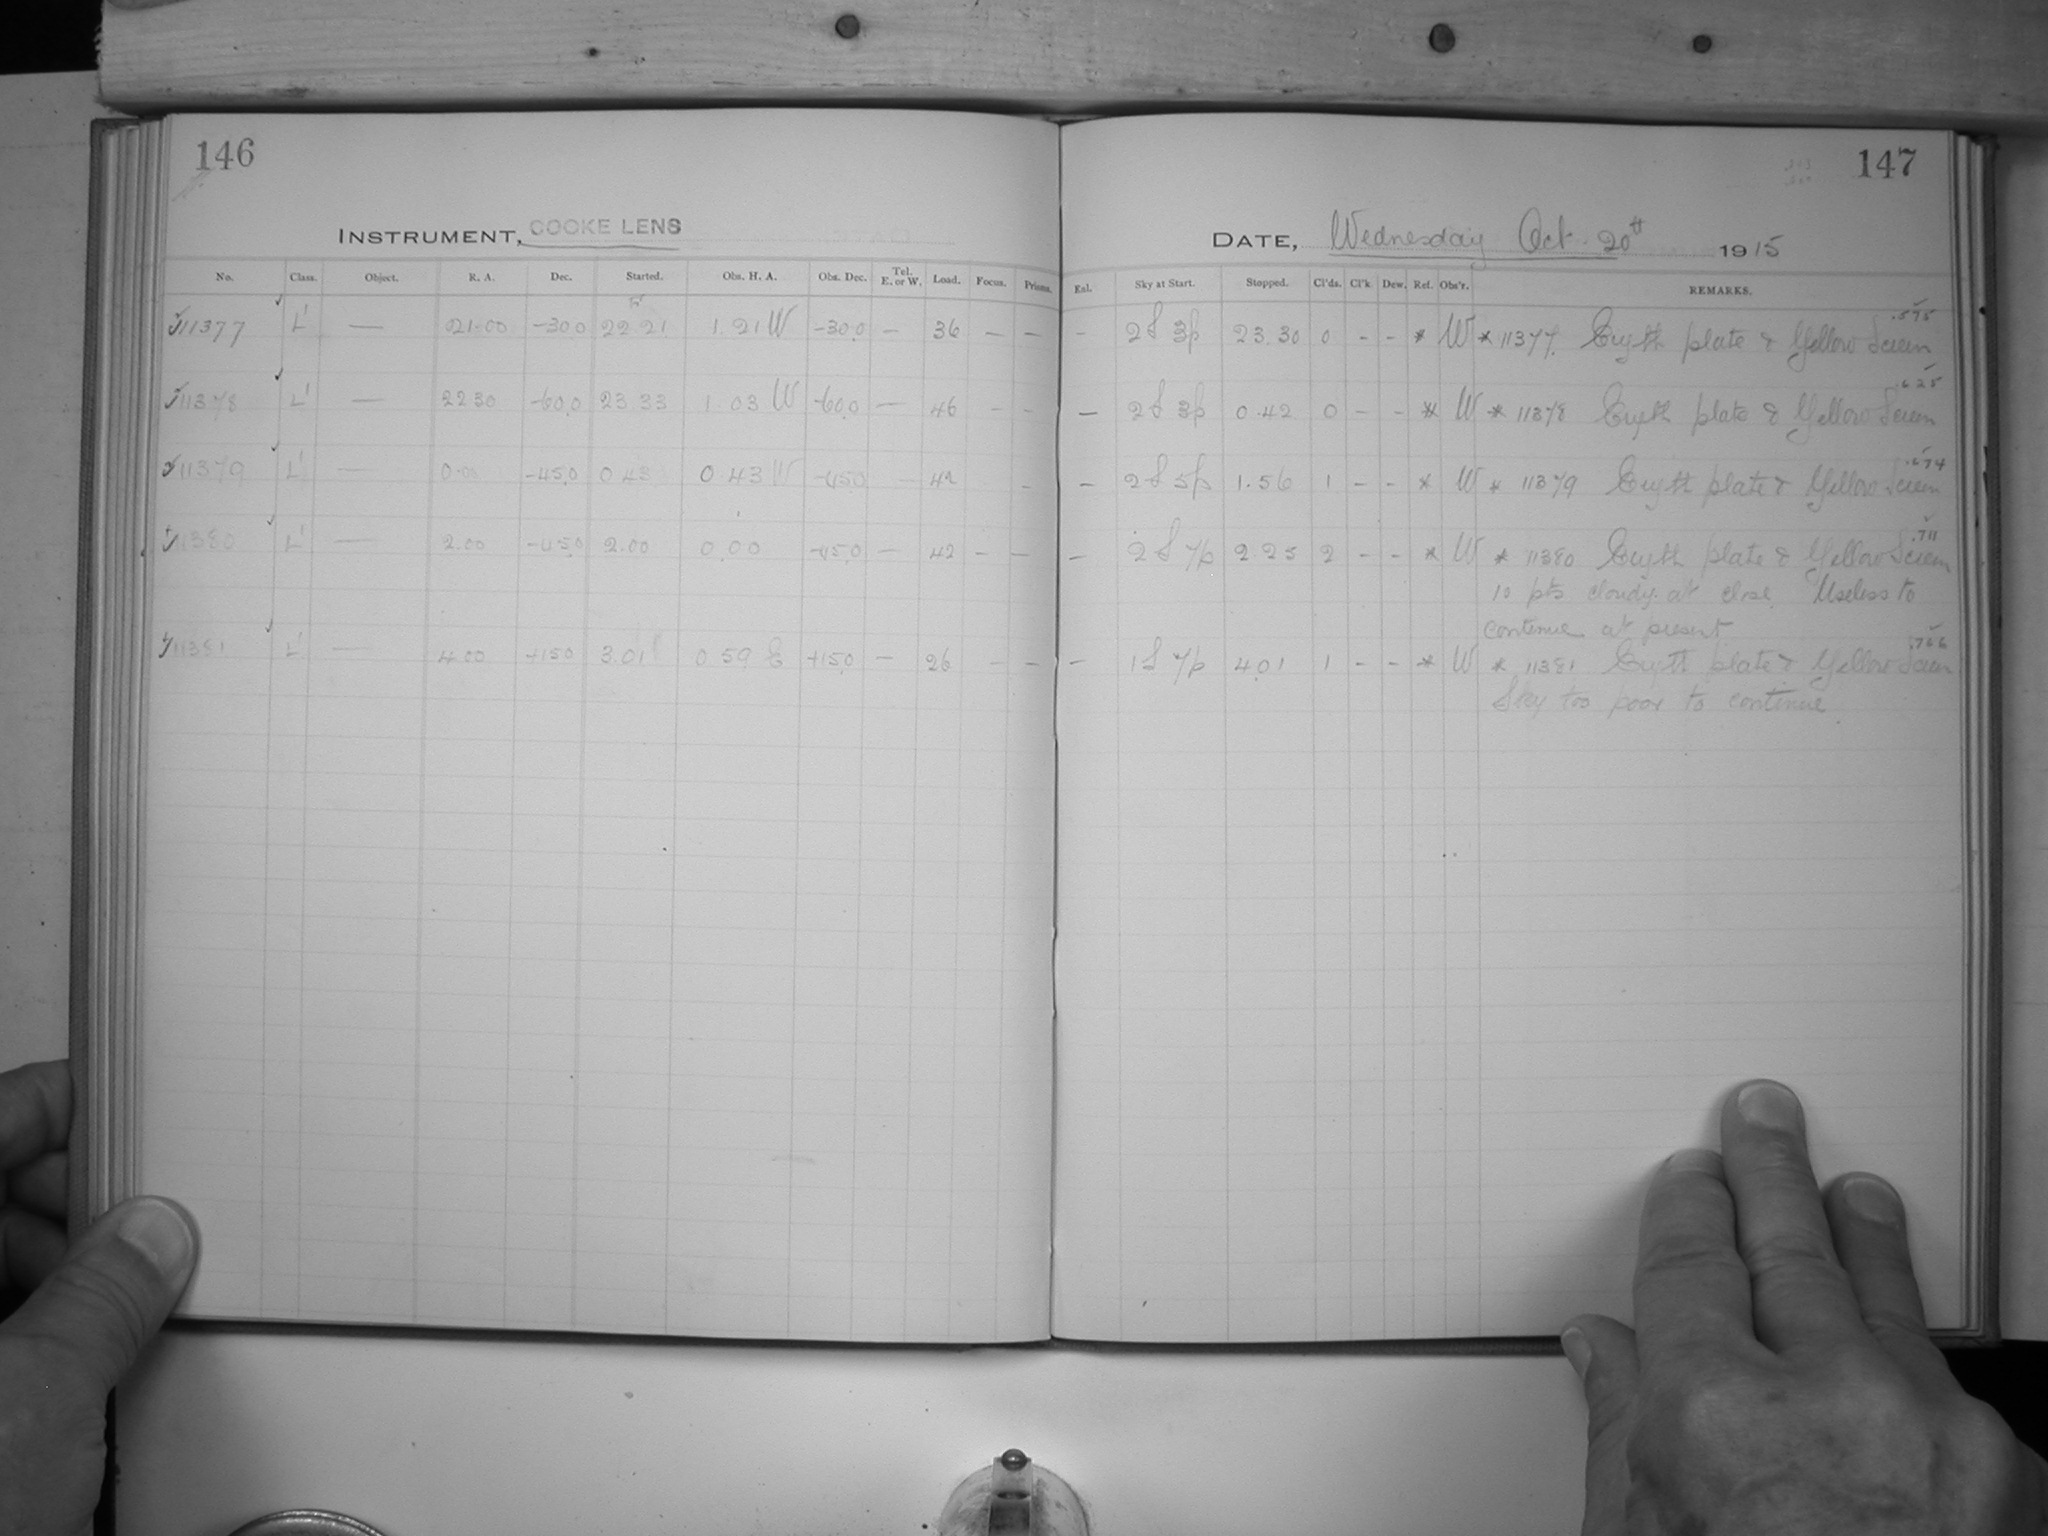 146
INSTRUMENT, COOKE LENS
No. Class. Object. R. A. Dec. Started. Obs. H. A. Obs. Dec. Tel. E. or W. Load. Focus. Prisms.
11377 L' — 21.00 -30.0 22 21 1.21 W -30.0 — 36 — —
11378 L' — 22 30 -60.0 23 33 1.03 W -60.0 — 46 - -
11379 L' — 0.00 -45.0 0 43 0 43 W -45.0 — 42 -
11380 L' — 2.00 -45.0 2.00 0.00 -45.0 — 42 - —
11381 L' — 4.00 +15.0 3.01 0.59 E +15.0 — 26 - -
147
DATE, Wednesday Oct. 20th 1915
Enl. Sky at Start. Stopped. Cl'ds. Cl'k Dew. Ref. Obs'r. REMARKS.
- 2 S 3p 23.30 0 - - * W * 11377. Eryth plate & Yellow Screen .575
— 2 S 3p 0.42 0 - - * W * 11378 Eryth plate & Yellow Screen .625
— 2 S 5p 1.56 1 - - * W * 11379 Eryth plate & Yellow Screen .674
— 2 S 7p 2.25 2 - - * W * 11380 Eryth plate & Yellow Screen .711
10 pts cloudy at close Useless to
continue at present
— 1 S 7p 4.01 1 - - * W * 11381 Eryth plate & Yellow Screen .766
Sky too poor to continue